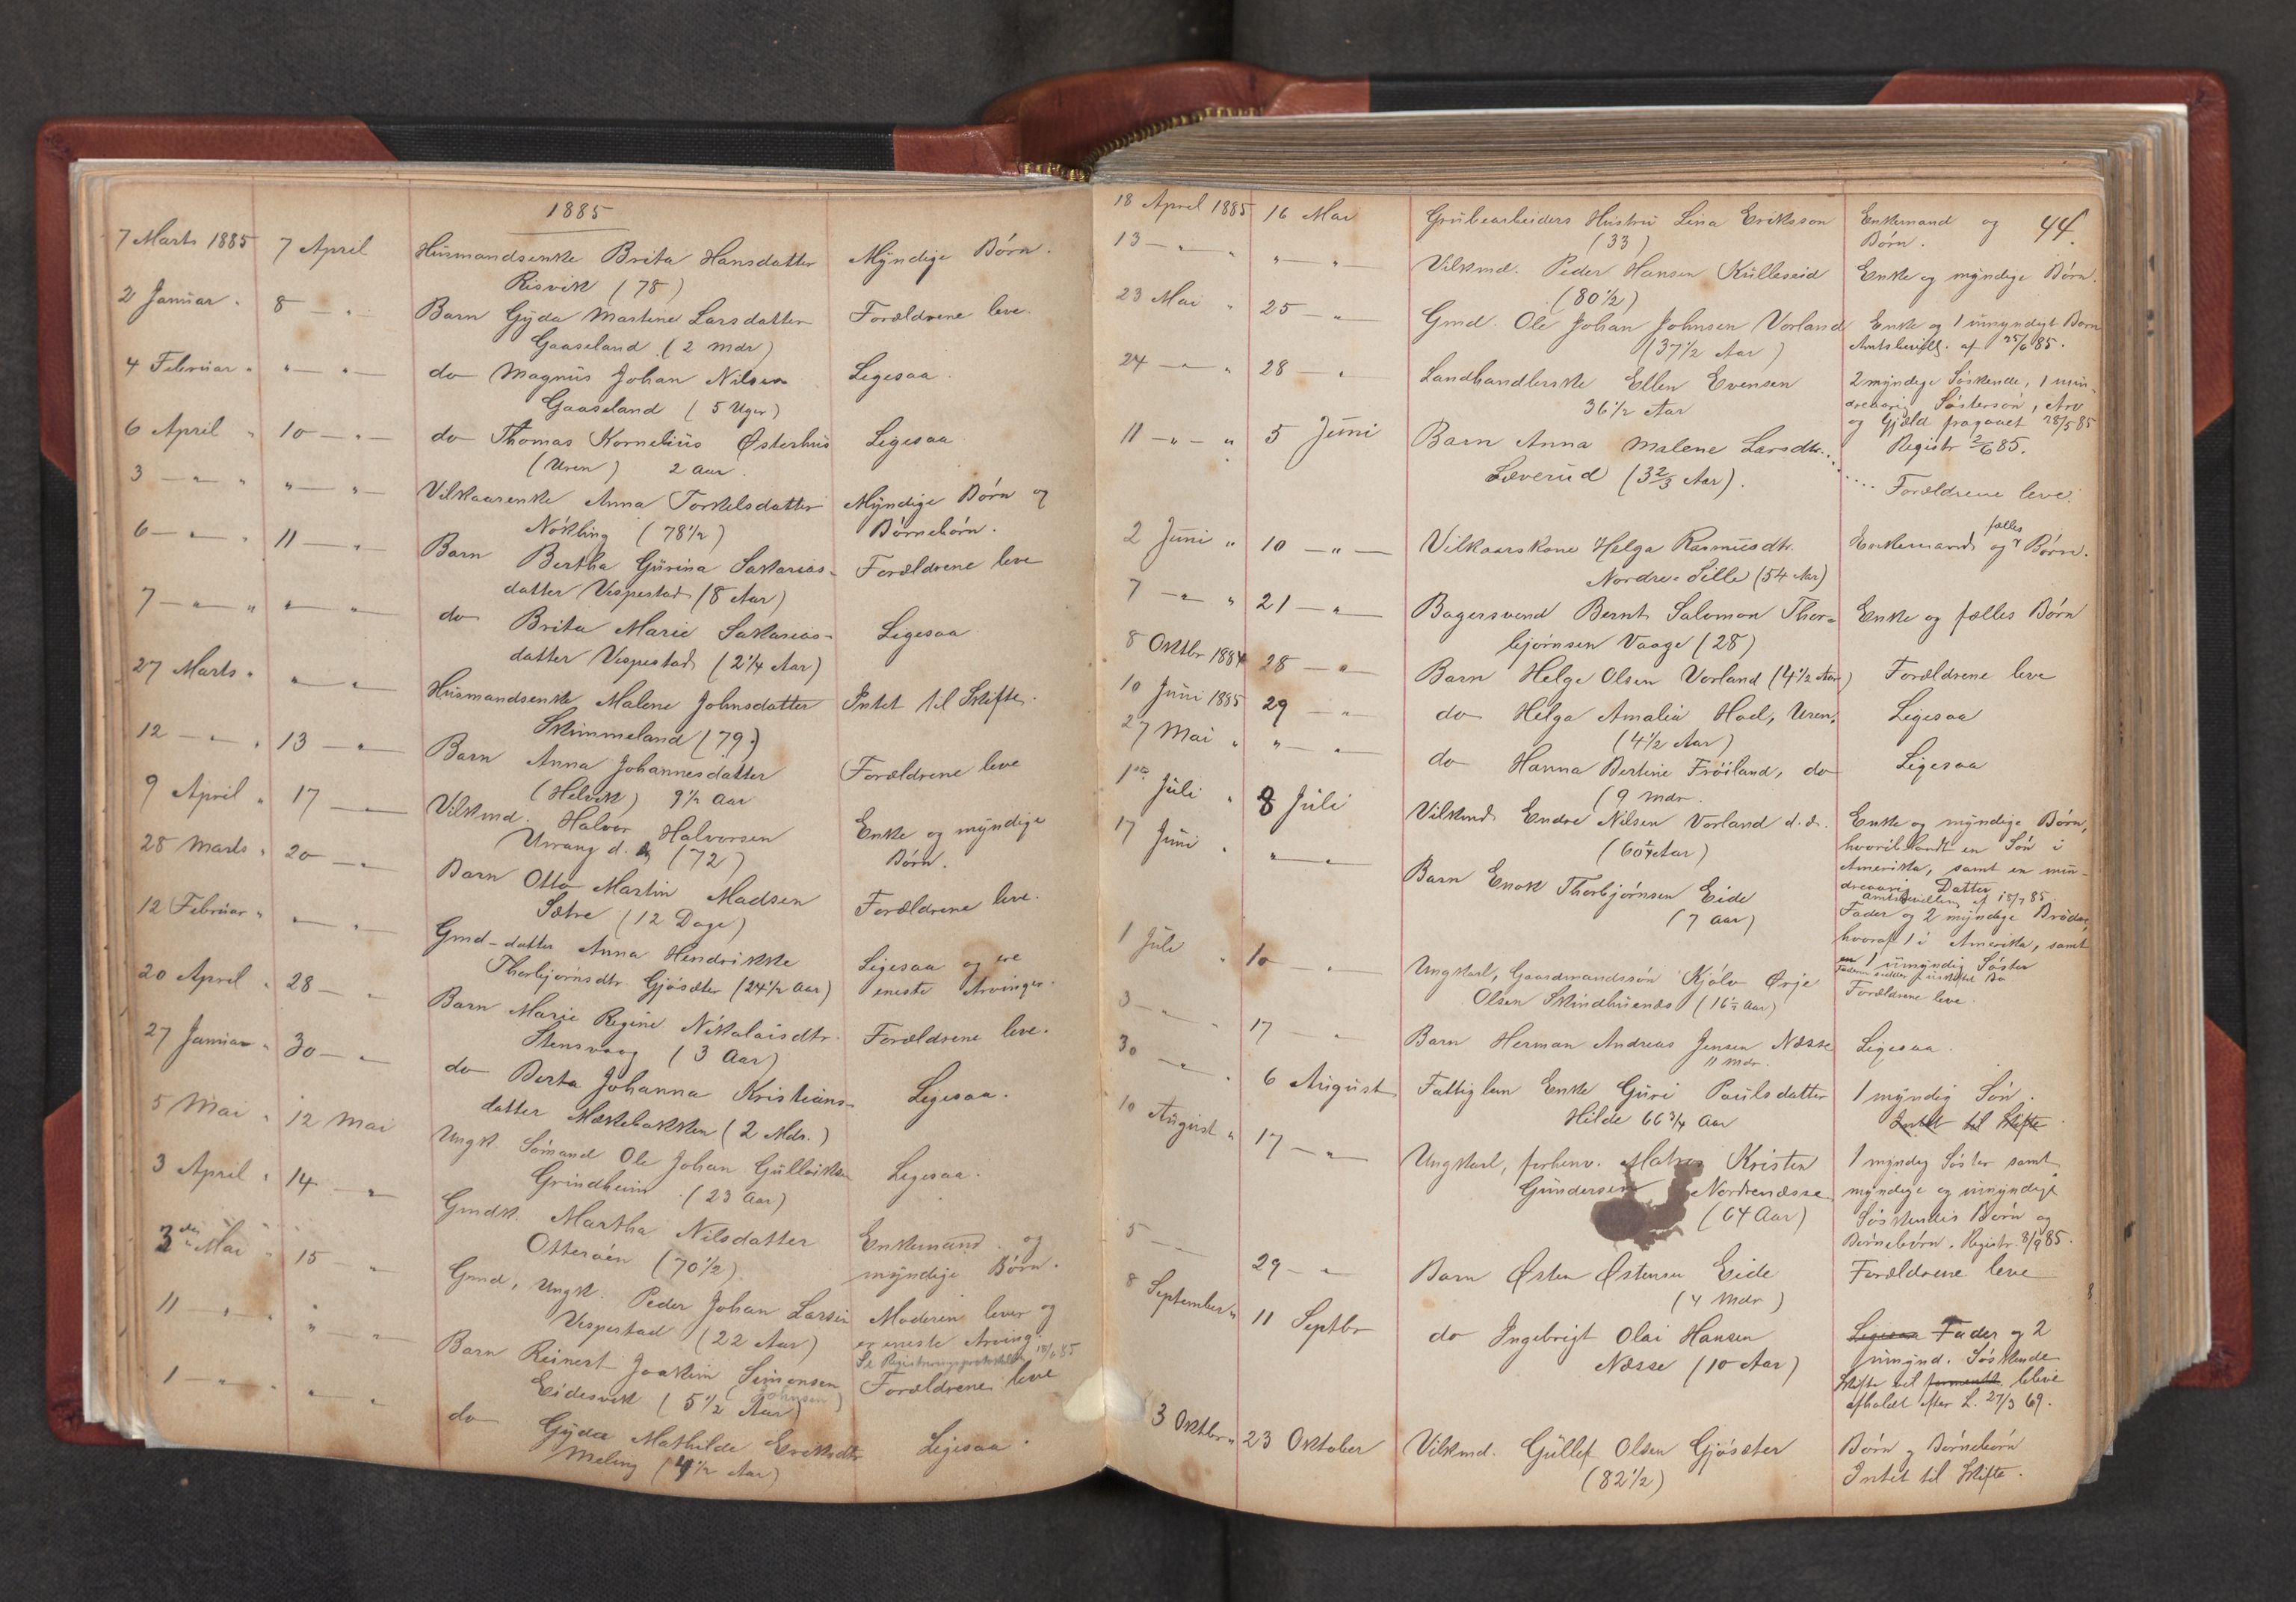 1885
7 Marts 1885 7 April Husmandsenke Brita Hansdatter Myndige Børn.
Risvik (78)
2 Januar " 8 — " — Barn Gyda Martine Larsdatter Forældrene leve.
Gaaseland (2 Mdr)
4 Februar " " — " — do Magnus Johan Nilsen Ligesaa
Gaaseland (5 Uger)
6 April " 10 — " — do Thomas Kornelius Østerhus Ligesaa
(Uren) 2 Aar.
3 — " — " " — " — Vilkaarsenke Anna Torkelsdatter Myndige Børn og
Nøkling (78 1/2) Børnebørn.
6 — " — " 11 — " — Barn Bertha Gurina Sakarias- Forældrene leve
datter Vespestad (8 Aar)
7 — " — " " — " — do Brita Marie Sakarias- Ligesaa
datter Vespestad (2 1/4 Aar)
27 Marts " " — " — Husmandsenke Malene Johnsdatter Intet til Skifte.
Skimmeland (79.)
12 — " — " 13 — " — Barn Anna Johannesdatter Forældrene leve
(Helvik) 9 1/2 Aar
9 April " 17 — " — Vilkmd. Halvor Halvorsen Enke og myndige
Urrang d. (72) Børn.
28 Marts " 20 — " — Barn Otto Martin Madsen Forældrene leve.
Sætre (12 Dage)
12 Februar " " — " — Gmd-datter Anna Hendrikke Ligesaa og ere
Thorbjørnsdtr. Gjøsæter (24 1/2 Aar) eneste Arvinger.
20 April " 28 — " — Barn Marie Regine Nikolaisdtr. Forældrene leve.
Stensvaag (3 Aar)
27 Januar " 30 — " — do Berta Johanna Kristians- Ligesaa.
datter Mækebakken (2 Mdr.)
5 Mai " 12 Mai Ungk. Sømand Ole Johan Gulleiksen Ligesaa.
Grindheim (23 Aar)
3 April " 14 — " — Gmdk. Martha Nilsdatter Enkemand og
Otterøen (70 1/2) myndige Børn.
3die Mai " 15 — " — Gmd, Ungk. Peder Johan Larsen Moderen lever og
Vespestad (22 Aar) er eneste Arving.
Se Registreringsprotokollen 18/6 85
11 — " — " " — " — Barn Reinert Joakim Simonsen Forældrene leve
Eidesvik (5 1/2 Aar) (Johnsen)
1 — " — " " — " — do Gyda Mathilde Eriksdtr Ligesaa.
Meling (4 1/2 Aar)
44.
18 April 1885 16 Mai Grubearbeiders Hustru Lina Eriksson Enkemand og
(33) Børn.
13 — " — " " — " — Vilkmd. Peder Hansen Kulleseid Enke og myndige Børn.
(80 1/2)
23 Mai " 25 — " — Gmd. Ole Johan Johnsen Vorland Enke og 1 umyndigt Barn
(37 1/2 Aar) Amtsbevillg. af 25/6 85.
24 — " — " 28 — " — Landhandlerske Ellen Evensen 2 myndige Søskende, 1 min-
36 1/2 Aar dreaarig Søstersøn, Arv
og Gjæld fragaaet 28/5 85
Registr 2/6 85.
11 — " — " 5 Juni Barn Anna Malene Larsdtr. ....
Læverud (3 2/3 Aar). .... Forældrene leve.
2 Juni " 10 — " — Vilkaarskone Helga Rasmusdtr. Enkemand og fælles Børn.
Nordre-Sille (54 Aar)
7 — " — " 21 — " — Bagersvend Bernt Salomon Thor- Enke og fælles Børn
bjørnsen Vaage (28)
8 Oktbr 1884 28 — " — Barn Helge Olsen Vorland (4 1/2 Aar) Forældrene leve
10 Juni 1885 29 — " — do Helga Amalia Hoel, Uren. Ligesaa
(4 1/2 Aar)
27 Mai " " — " — do Hanna Bertine Frøiland, do Ligesaa
(9 Mdr.
1ste Juli " 8 Juli Vilkmd Endre Nilsen Vorland d.æ. Enke og myndige Børn,
(60 1/4 Aar) hvoriblandt en Søn i
Amerika, samt en min-
dreaarig Datter
Amtsbevilling af 15/7 85
17 Juni " " — " — Barn Enok Thorbjørnsen Eide Fader og 2 myndige Brødre,
(7 Aar) hvoraf 1 i Amerika, samt
en 1 umyndig Søster
Faderen sidder i uskiftet Bo
1 Juli " 10 — " — Ungkarl, Gaardmandssøn Kjølv Ørje Forældrene leve.
Olsen Skindhuenæs (16 1/2 Aar)
3 — " — " 17 — " — Barn Herman Andreas Jensen Næsse Ligesaa.
11 Mdr.
30 — " — " 6 August Fattiglem Enke Guri Paulsdatter 1 myndig Søn.
Hilde 66 3/4 Aar Intet til Skifte
10 August " 17 — " — Ungkarl, forhenv. Matros Kristen 1 myndig Søster samt
Gundersen Nordrenæsse myndige og umyndige
(64 Aar) Søskendes Børn og
Børnebørn. Registr. 8/9 85.
5 — " — 29 — " — Barn Østen Østensen Eide Forældrene leve
(4 Mdr)
8 September " 11 Septbr do Ingebrigt Olai Hansen Ligesaa Fader og 2
Næsse (10 Aar) umynd. Søskende
Skifte vil formentl. blive
afholdt efter L. 27/3 69.
3 Oktbr " 23 Oktober Vilkmd. Gullef Olsen Gjøsæter Børn og Børnebørn
(82 1/2) Intet til Skifte.